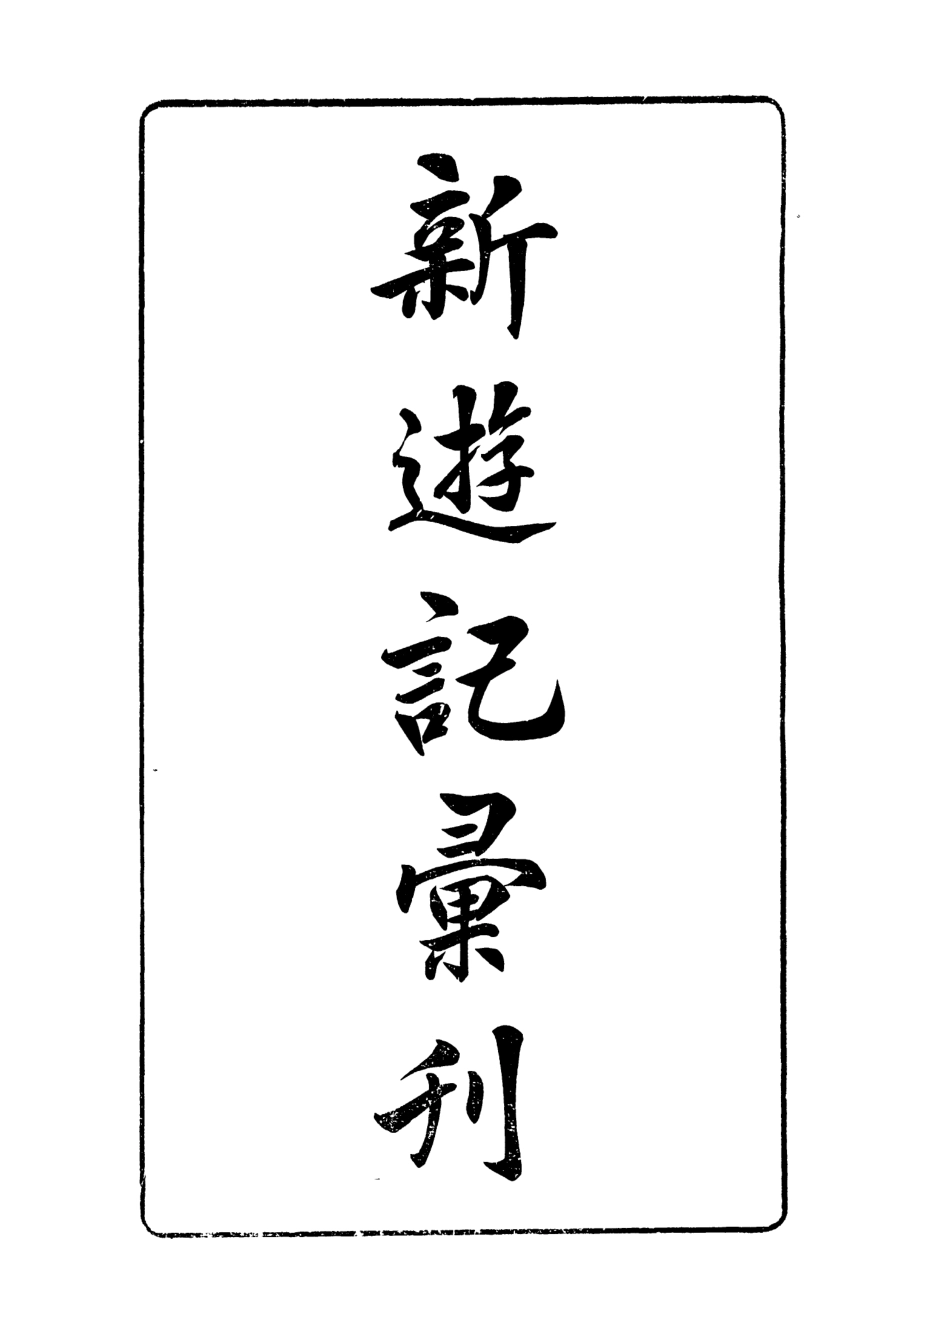 新遊記彙刊